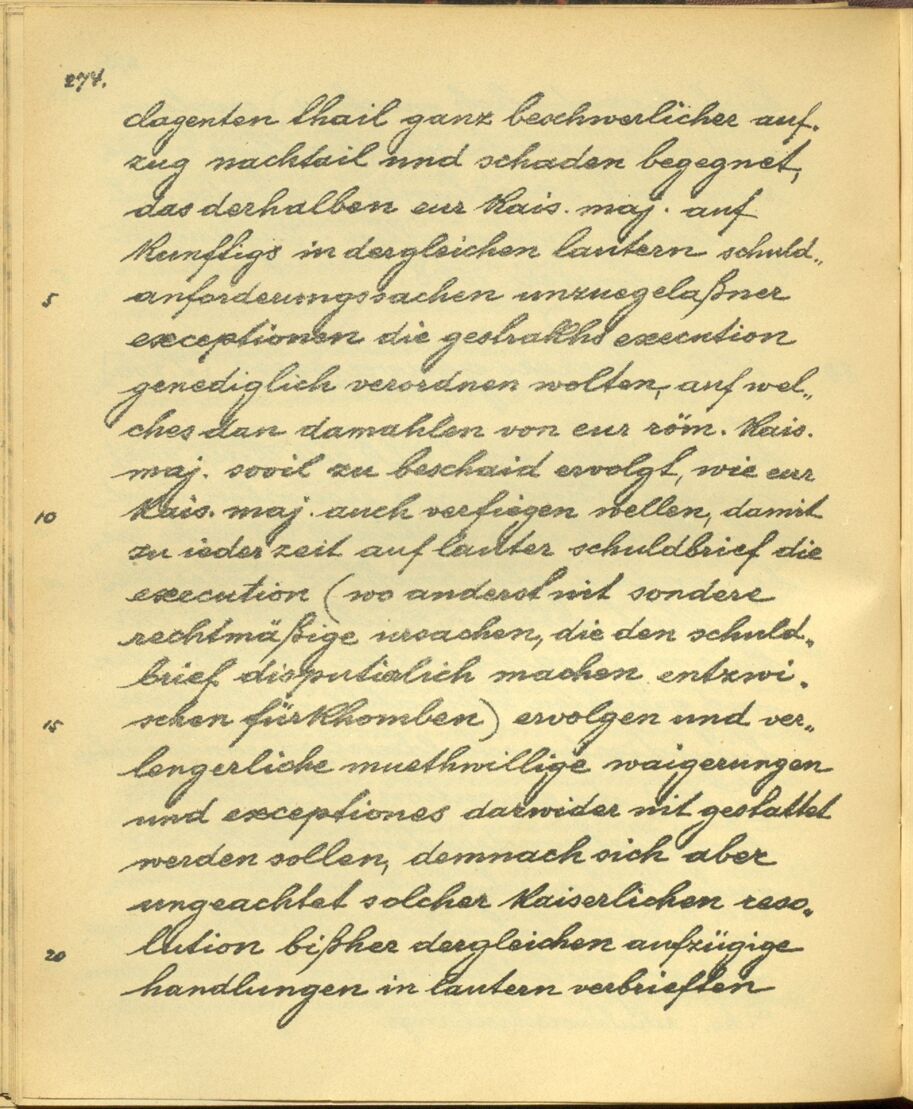 274.
clagenten thail ganz beschwerlicher auf-
zug nachtail und schaden begegnet,
das derhalben eur kais. maj. auf
kunftigs in dergleichen lautern schuld„
5 anforderungssachen unzuegelaßner
exceptionen die gestrakhs execution
genediglich verordnen wolten, auf wel„
ches dan damahlen von eur röm. kais.
maj. sovil zu beschaid ervolgt, wie eur
10 kais. maj. auch verfiegen wellen, damit
zu ieder zeit auf lauter schuldbrief die
execution (wo anderst nit sondere
rechtmäßige ursachen, die den schuld„
brief disputierlich machen entzwi„
15 schen fürkhomben) ervolgen und ver„
lengerliche muethwillige waigerungen
und exceptiones darwider nit gestattet
werden sollen, demnach sich aber
ungeachtet solcher kaiserlichen reso„
20 lution bißher dergleichen aufzügige
handlungen in lautern verbrieften